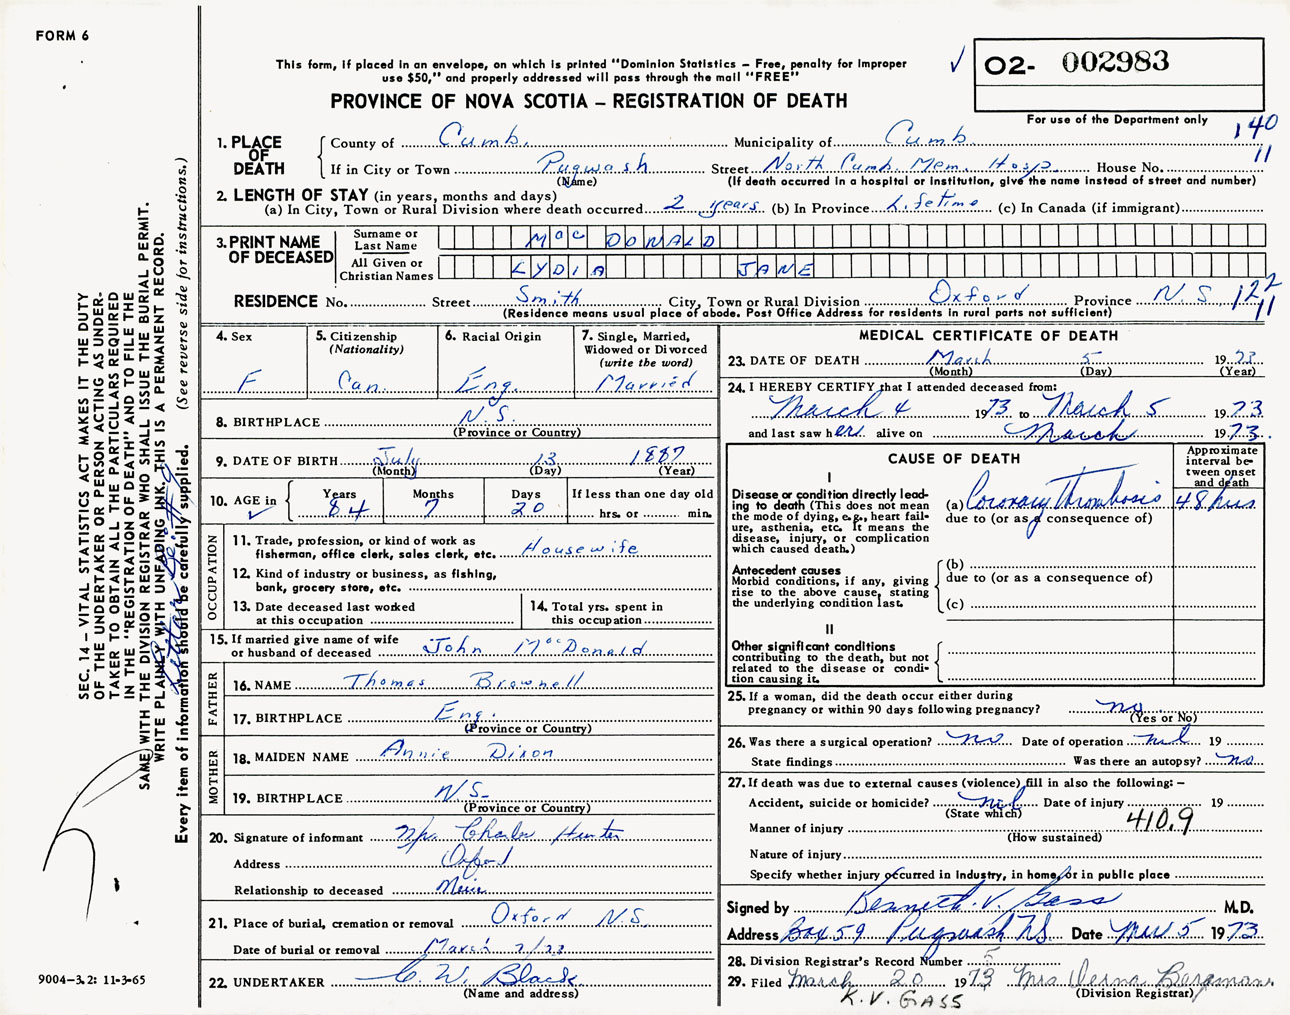 FORM 6
This form, if placed in an envelope, on which is printed "Dominion Statistics – Free, penalty for improper
use $50," and properly addressed will pass through the mail "FREE"
✓ O2- 002983
PROVINCE OF NOVA SCOTIA – REGISTRATION OF DEATH
For use of the Department only
1. PLACE OF DEATH
County of Cumb. Municipality of Cumb. 140
If in City or Town Pugwash Street North Cumb. Mem. Hosp. House No. 11
(Name) (If death occurred in a hospital or institution, give the name instead of street and number)
2. LENGTH OF STAY (in years, months and days)
(a) In City, Town or Rural Division where death occurred 2 years (b) In Province Lifetime (c) In Canada (if immigrant)
3. PRINT NAME OF DECEASED
Surname or Last Name MacDONALD
All Given or Christian Names LYDIA JANE
RESIDENCE No. Street Smith City, Town or Rural Division Oxford Province N.S. 122
(Residence means usual place of abode. Post Office Address for residents in rural parts not sufficient) 11
4. Sex F
5. Citizenship (Nationality) Can.
6. Racial Origin Eng.
7. Single, Married, Widowed or Divorced (write the word) Married
8. BIRTHPLACE N.S.
(Province or Country)
9. DATE OF BIRTH July 13 1887
(Month) (Day) (Year)
10. AGE in ✓ Years 84 Months 7 Days 20 If less than one day old hrs. or min.
OCCUPATION
11. Trade, profession, or kind of work as
fisherman, office clerk, sales clerk, etc. Housewife
12. Kind of industry or business, as fishing,
bank, grocery store, etc.
13. Date deceased last worked at this occupation
14. Total yrs. spent in this occupation
15. If married give name of wife
or husband of deceased John McDonald
FATHER
16. NAME Thomas Brownell
17. BIRTHPLACE Eng.
(Province or Country)
MOTHER
18. MAIDEN NAME Annie Dixon
19. BIRTHPLACE N.S.
(Province or Country)
20. Signature of informant Mrs. Charles Hunter
Address Oxford
Relationship to deceased
21. Place of burial, cremation or removal Oxford N.S.
Date of burial or removal March 7/73
22. UNDERTAKER C. W. Black
(Name and address)
MEDICAL CERTIFICATE OF DEATH
23. DATE OF DEATH March 5 1973
(Month) (Day) (Year)
24. I HEREBY CERTIFY that I attended deceased from:
March 4 1973 to March 5 1973
and last saw her alive on March 1973.
CAUSE OF DEATH
Approximate interval between onset and death
I
Disease or condition directly lead-
ing to death (This does not mean
the mode of dying, e.g., heart fail-
ure, asthenia, etc. It means the
disease, injury, or complication
which caused death.)
(a) Coronary Thrombosis 48 hrs
due to (or as a consequence of)
Antecedent causes
Morbid conditions, if any, giving
rise to the above cause, stating
the underlying condition last.
(b)
due to (or as a consequence of)
(c)
II
Other significant conditions
contributing to the death, but not
related to the disease or condi-
tion causing it.
25. If a woman, did the death occur either during
pregnancy or within 90 days following pregnancy? no
(Yes or No)
26. Was there a surgical operation? no Date of operation nil 19
State findings Was there an autopsy? no
27. If death was due to external causes (violence) fill in also the following: –
Accident, suicide or homicide? nil Date of injury 19
(State which)
Manner of injury 410.9
(How sustained)
Nature of injury
Specify whether injury occurred in industry, in home, or in public place
Signed by Kenneth V. Gass M.D.
Address Box 59 Pugwash NS. Date Mar 5 1973
28. Division Registrar's Record Number 5
29. Filed March 20 1973 Mrs Verna Bergman
(Division Registrar)
K.V. GASS
SEC. 14 – VITAL STATISTICS ACT MAKES IT THE DUTY
OF THE UNDERTAKER OR PERSON ACTING AS UNDER-
TAKER TO OBTAIN ALL THE PARTICULARS REQUIRED
IN THE "REGISTRATION OF DEATH" AND TO FILE THE
SAME WITH THE DIVISION REGISTRAR WHO SHALL ISSUE THE BURIAL PERMIT.
WRITE PLAINLY WITH UNFADING INK. THIS IS A PERMANENT RECORD.
Every item of information should be carefully supplied. (See reverse side for instructions.)
9004–3.2: 11-3-65